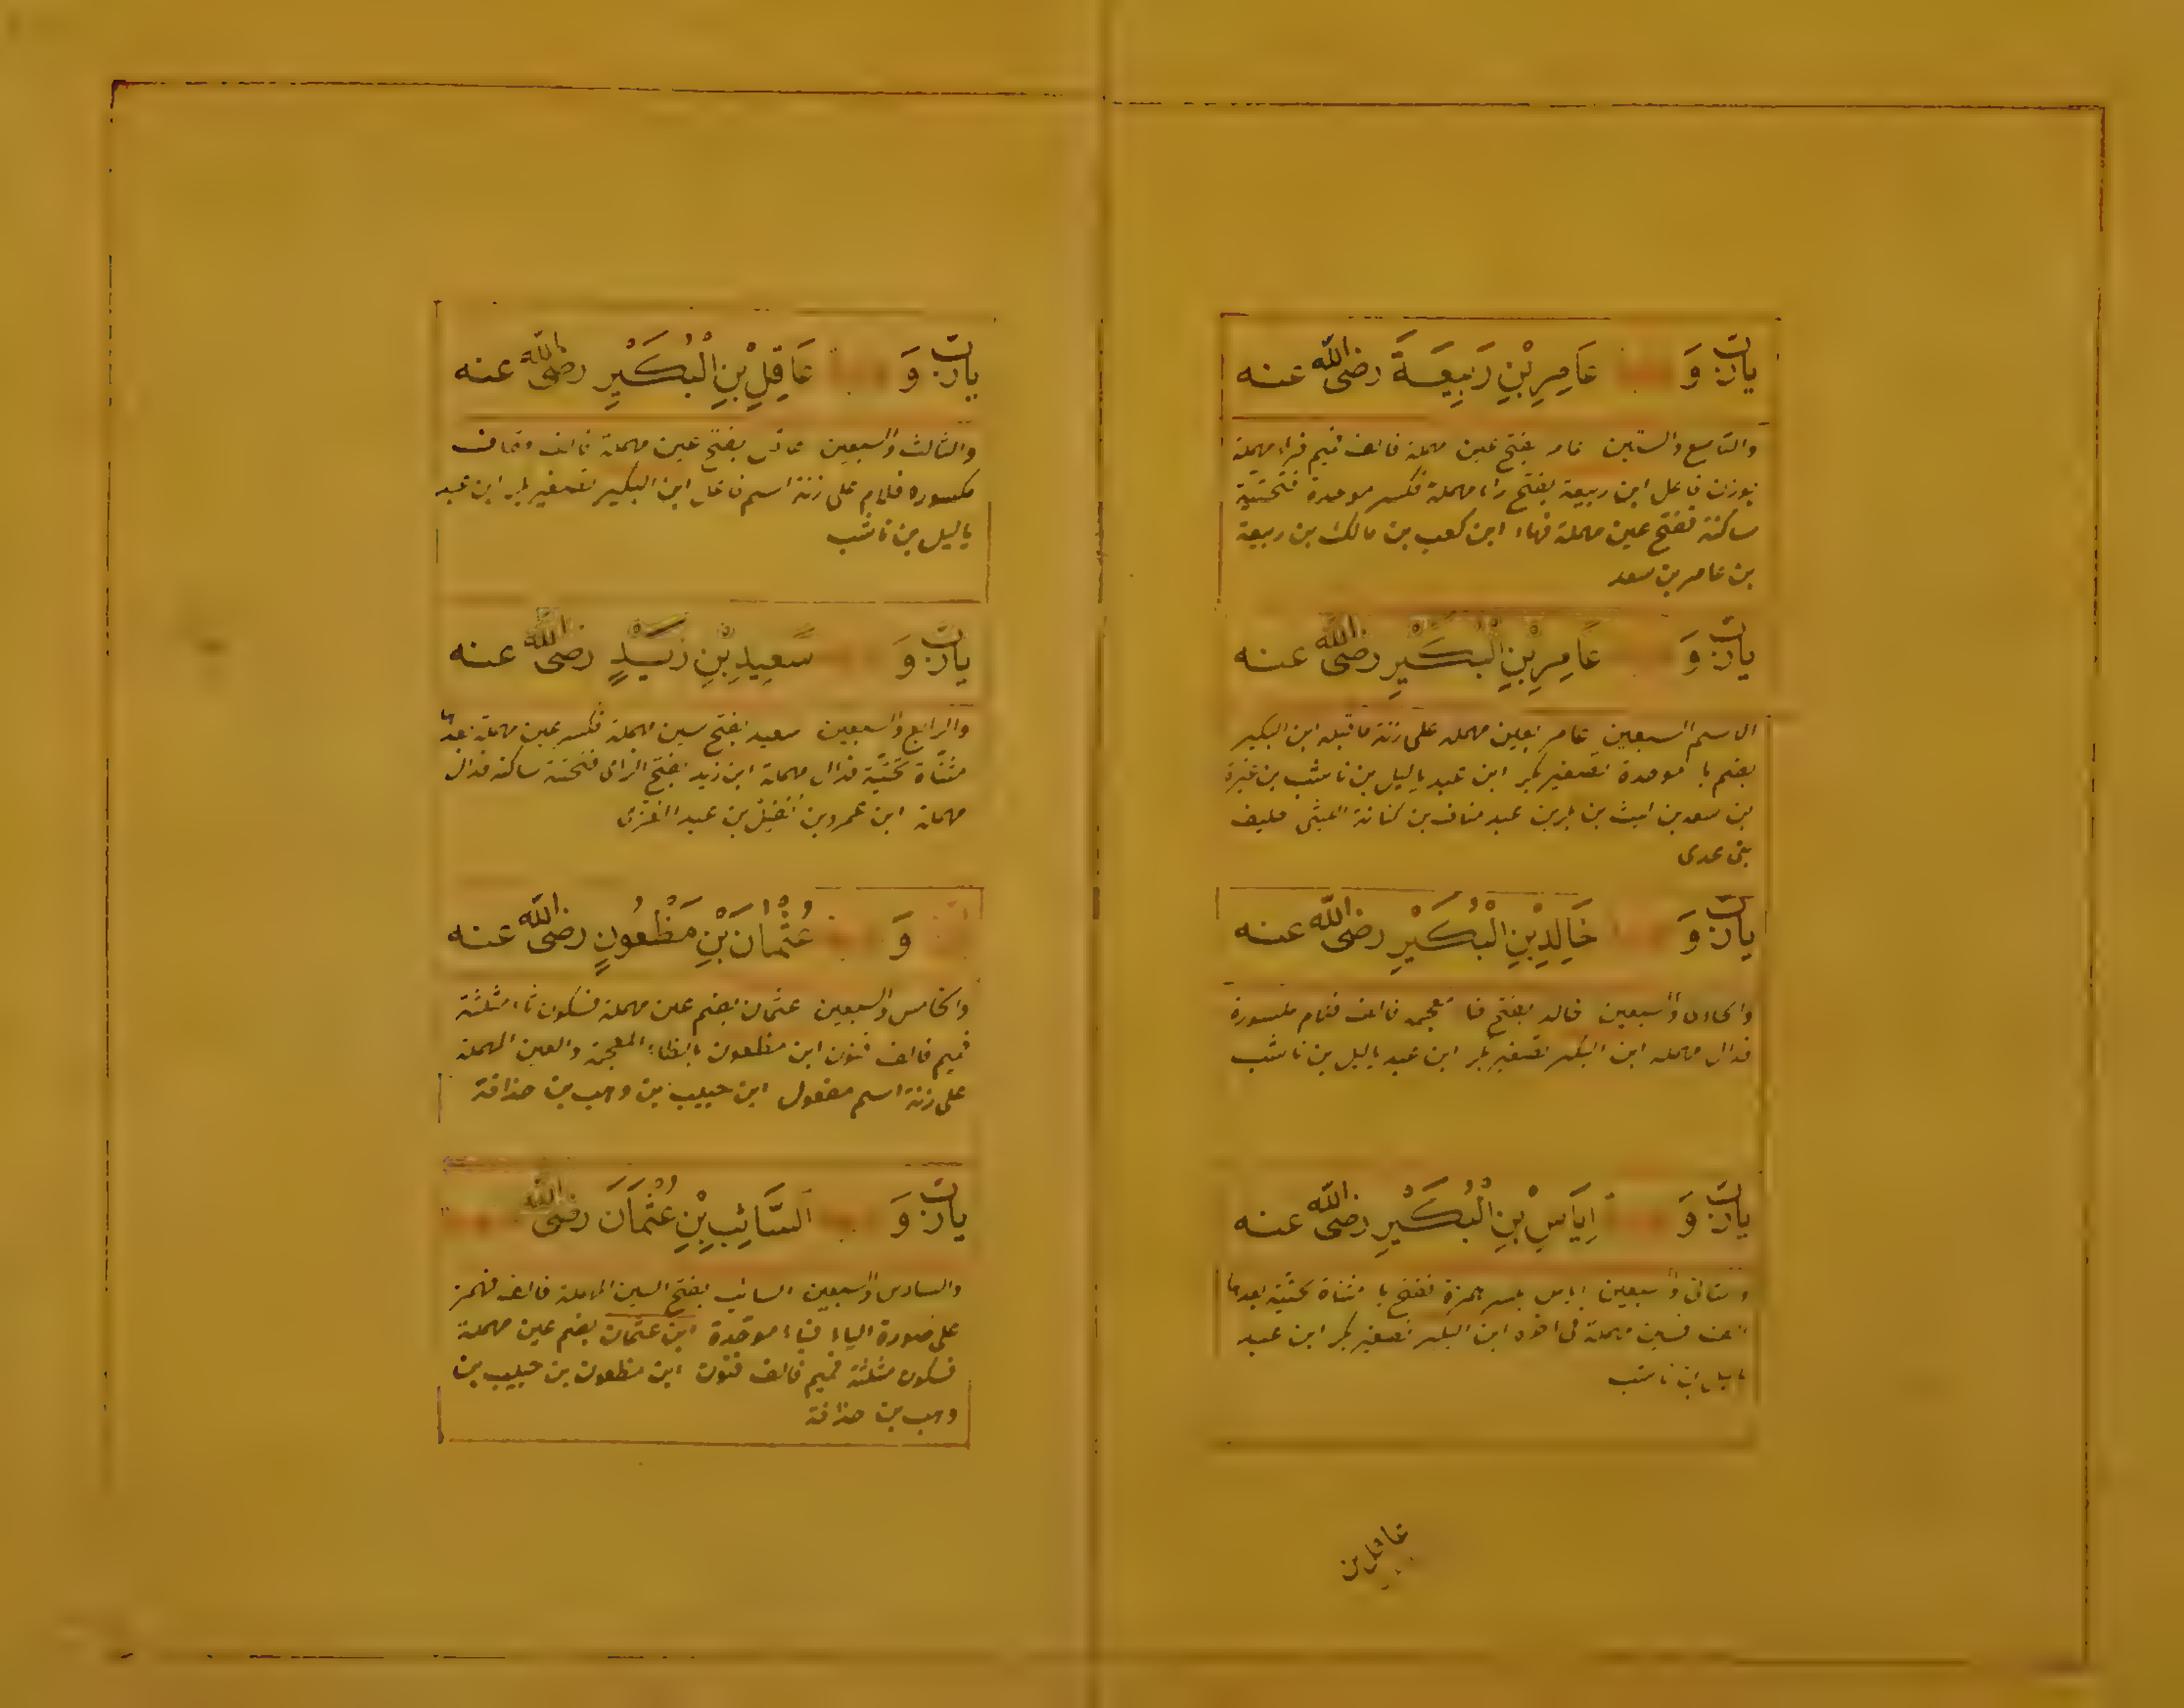 يارب و عَامِرِ بْنِ رَبِيعَةَ رضى الله عنه
والتاسع والستين عامر بفتح عين مهملة فالف فميم فراء مهملة
بوزن فاعل ابن ربيعة بفتح راء مهملة فكسر موحدة فتحتية
ساكنة ففتح عين مهملة فهاء ابن كعب بن مالك بن ربيعة
بن عامر بن سعد
يارب و عَامِرِ بْنِ الْبُكَيْرِ رضى الله عنه
الاسم السبعين عامر بعين مهملة على زنة ما قبله ابن البكير
بضم با موحدة تصغير بكر ابن عبد ياليل بن ناشب بن غيرة
بن سعد بن ليث بن بكر بن عبد مناف بن كنانة الليثى حليف
بنى عدى
يارب و خَالِدِ بْنِ الْبُكَيْرِ رضى الله عنه
والحادى والسبعين خالد بفتح خا معجمه فالف فلام مكسورة
فدال مهمله ابن البكير تصغير بكر ابن عبد ياليل بن ناشب
يارب و اِيَاسِ بْنِ الْبُكَيْرِ رضى الله عنه
والثانى والسبعين اياس بكسر همزة ففتح با مثناة تحتية بعدها
الف فسين مهملة فى اخره ابن البكير تصغير بكر ابن عبد
ياليل ابن ناشب
عاقل بن
يارب و عَاقِلِ بْنِ الْبُكَيْرِ رضى الله عنه
والثالث والسبعين عاقل بفتح عين مهملة فالف وقاف
مكسوره فلام على زنة اسم فاعل ابن البكير تصغير بكر ابن عبد
ياليل بن ناشب
يارب و سَعِيدِ بْنِ زَيْدٍ رضى الله عنه
والرابع والسبعين سعيد بفتح سين مهملة فكسر عين مهملة بعدها
مثناة تحتية فدال مهملة ابن زيد بفتح الزاى فتحتية ساكنة فدال
مهملة ابن عمرو بن نفيل بن عبد العزى
و عُثْمَانَ بْنِ مَظْعُونٍ رضى الله عنه
والخامس والسبعين عثمان بضم عين مهملة فسكون ثاء مثلثة
فميم فالف فنون ابن مظعون بالظاء المعجمة والعين المهملة
على زنة اسم مفعول ابن حبيب بن وهب بن حذافة
يارب و السَّائِبِ بْنِ عُثْمَانَ رضى الله
والسادس والسبعين السائب بفتح السين المهملة فالف فهمز
على صورة الياء فباء موحدة ابن عثمان بضم عين مهملة
فسكون مثلثة فميم فالف فنون ابن مظعون بن حبيب بن
وهب بن حذافة